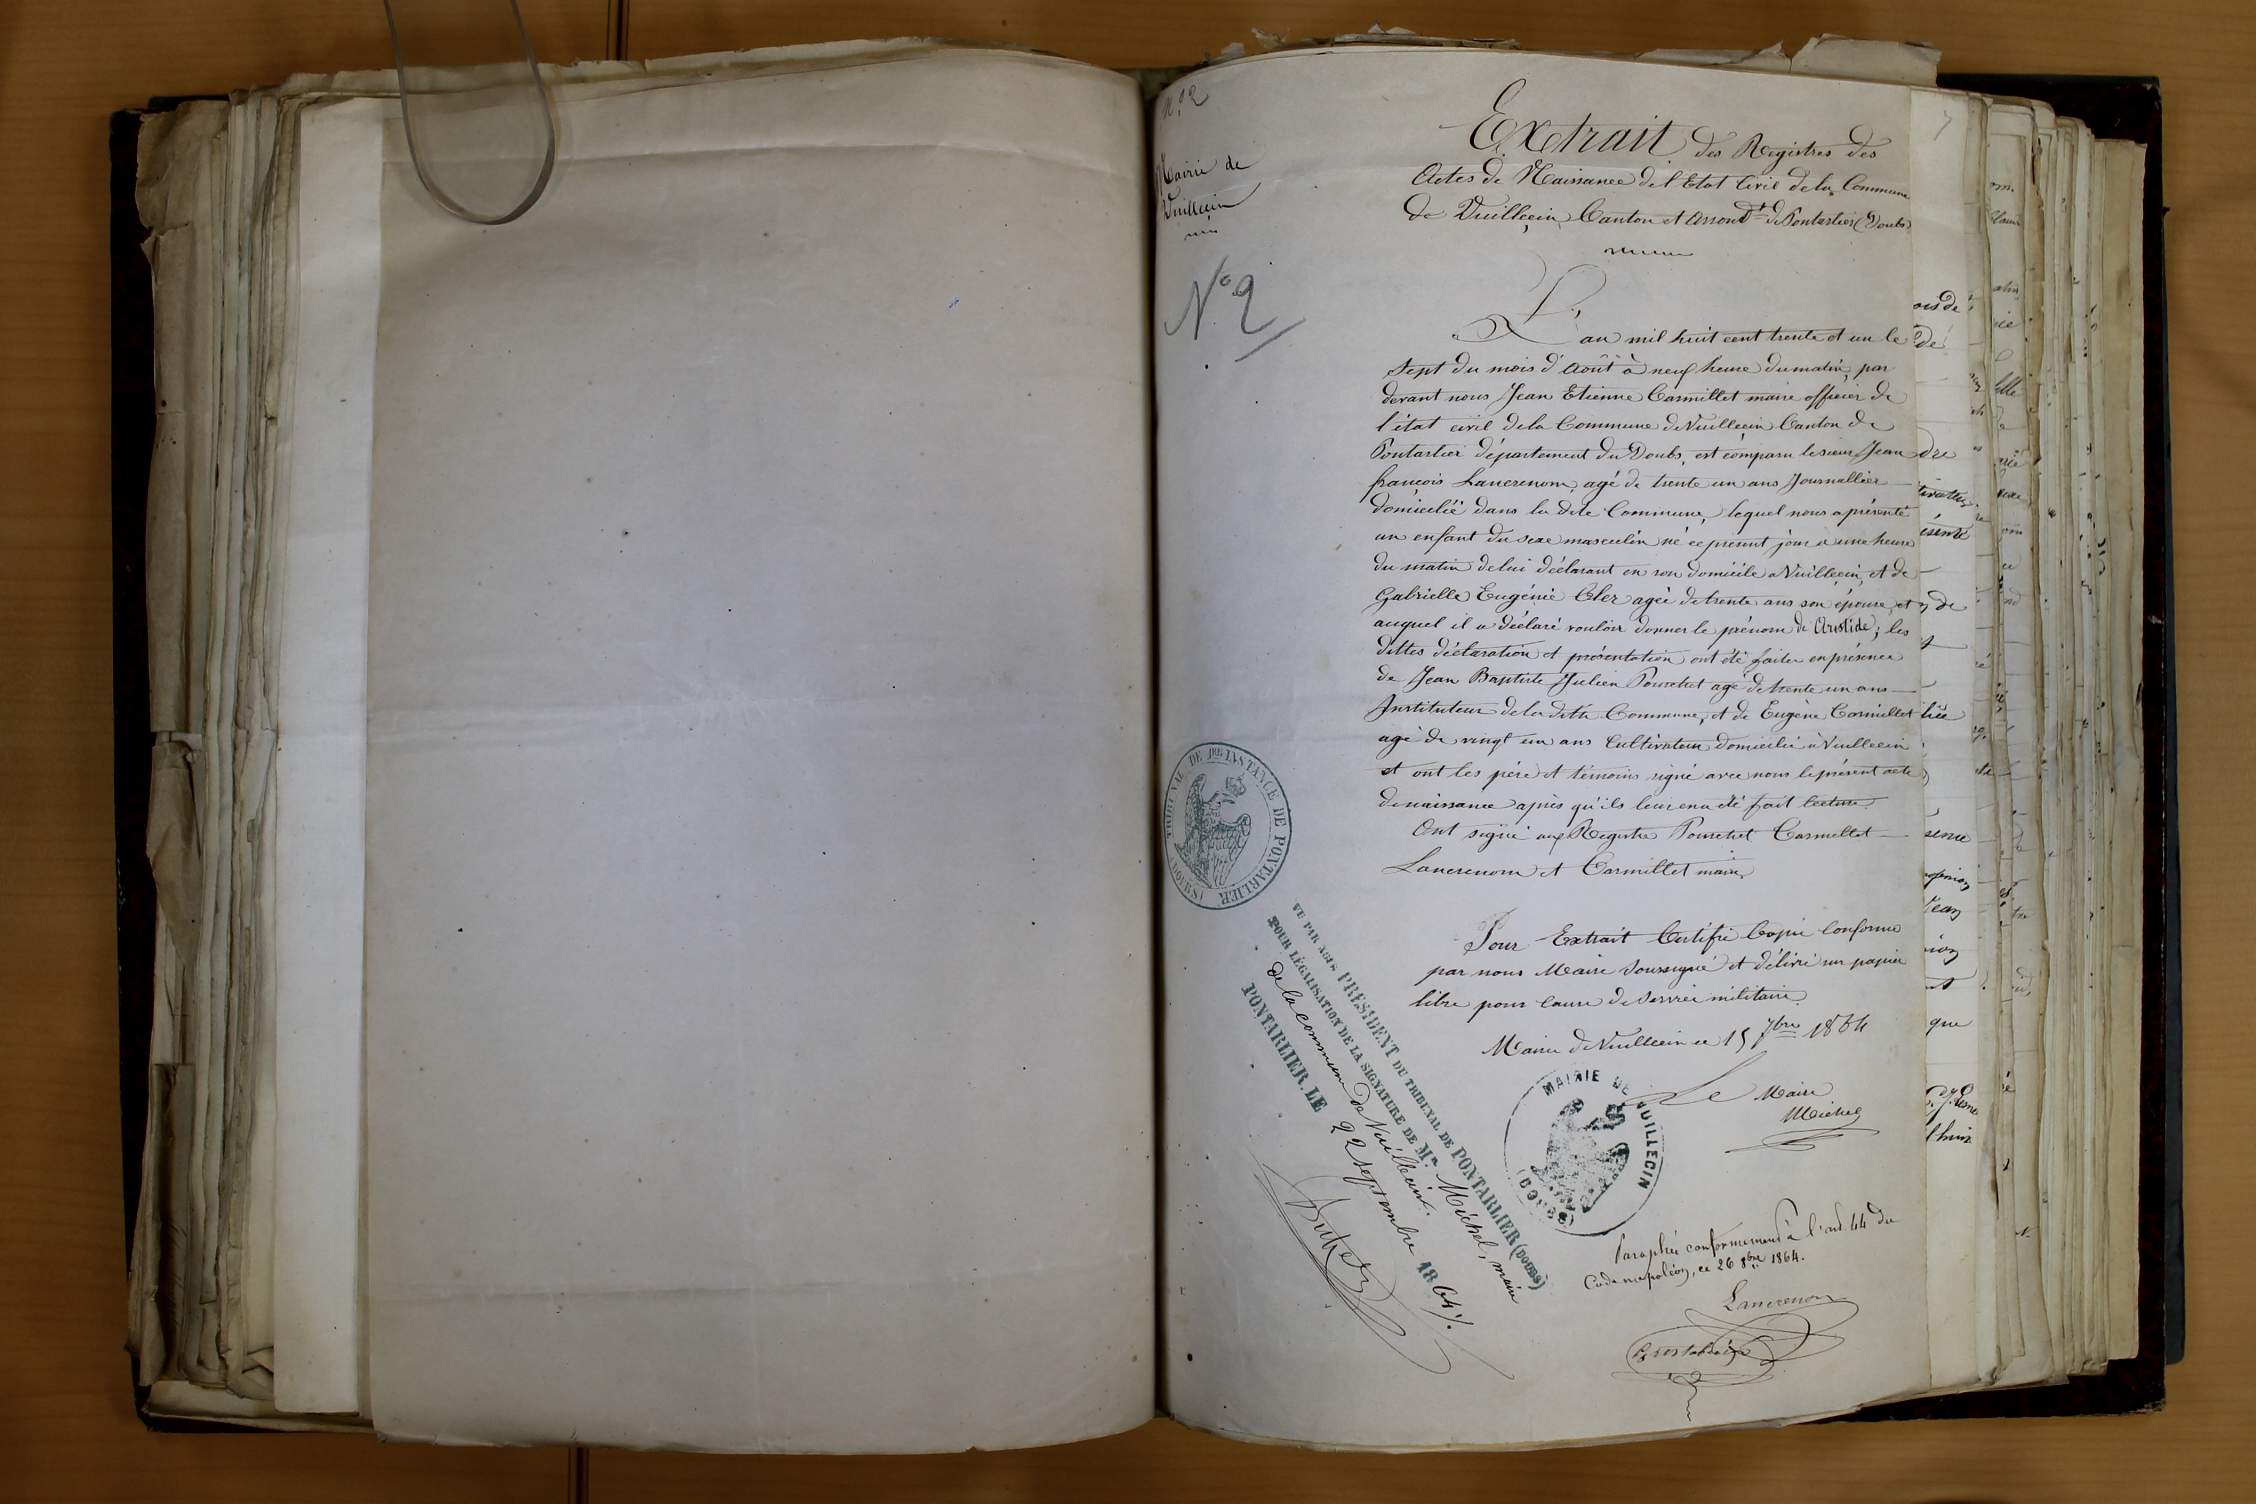 N.° 2
Mairie de
Vuillecin
N° 2
Extrait des Registres des
Actes de Naissance de l'Etat Civil de la Commune
de Vuillecin, Canton et Arrondt de Pontarlier (Doubs)
L'an mil huit cent trente et un le
sept du mois d'Août à neuf heure du matin, par
devant nous Jean Etienne Carmillet maire officier de
l'état civil de la Commune de Vuillecin Canton de
Pontarlier département du Doubs, est comparu le sieur Jean
françois Lancrenon, agé de trente un ans Journallier
domicilié dans la dite Commune, lequel nous a présenté
un enfant du sexe masculin né ce présent jour à une heure
du matin de lui déclarant en son domicile a Vuillecin, et de
Gabrielle Eugénie Cler agée de trente ans son épouse, et
auquel il a déclaré vouloir donner le prénom de Aristide; les
dittes déclaration et présentation ont été faites en présence
de Jean Baptiste Julien Pourchet agé de trente un ans
Instituteur de la ditte Commune, et de Eugène Carmillet
agé de vingt un ans Cultivateur domicilié à Vuillecin
et ont les père et témoins signé avec nous le présent acte
de naissance après qu'ils leur en a été fait lecture
Ont signé aux Registre Pourchet Carmillet
Lancrenon et Carmillet maire,
Pour Extrait Certifié Copie Conforme
par nous Maire soussigné et délivré sur papier
libre pour Cause de Service militaire.
Mairie de Vuillecin ce 15 7bre 1864
Le Maire
Michel
MAIRIE DE VUILLECIN
(DOUBS)
TRIBUNAL DE 1re INSTANCE DE PONTARLIER
VU PAR NOUS PRÉSIDENT DU TRIBUNAL DE PONTARLIER (DOUBS)
POUR LÉGALISATION DE LA SIGNATURE DE Mr Michel, maire
de la commune de Vuillecin.
PONTARLIER, LE 22 septembre 1864.
Paraphé conformément à l'art. 44 du
Code napoléon, ce 26 8bre 1864.
Lancrenon